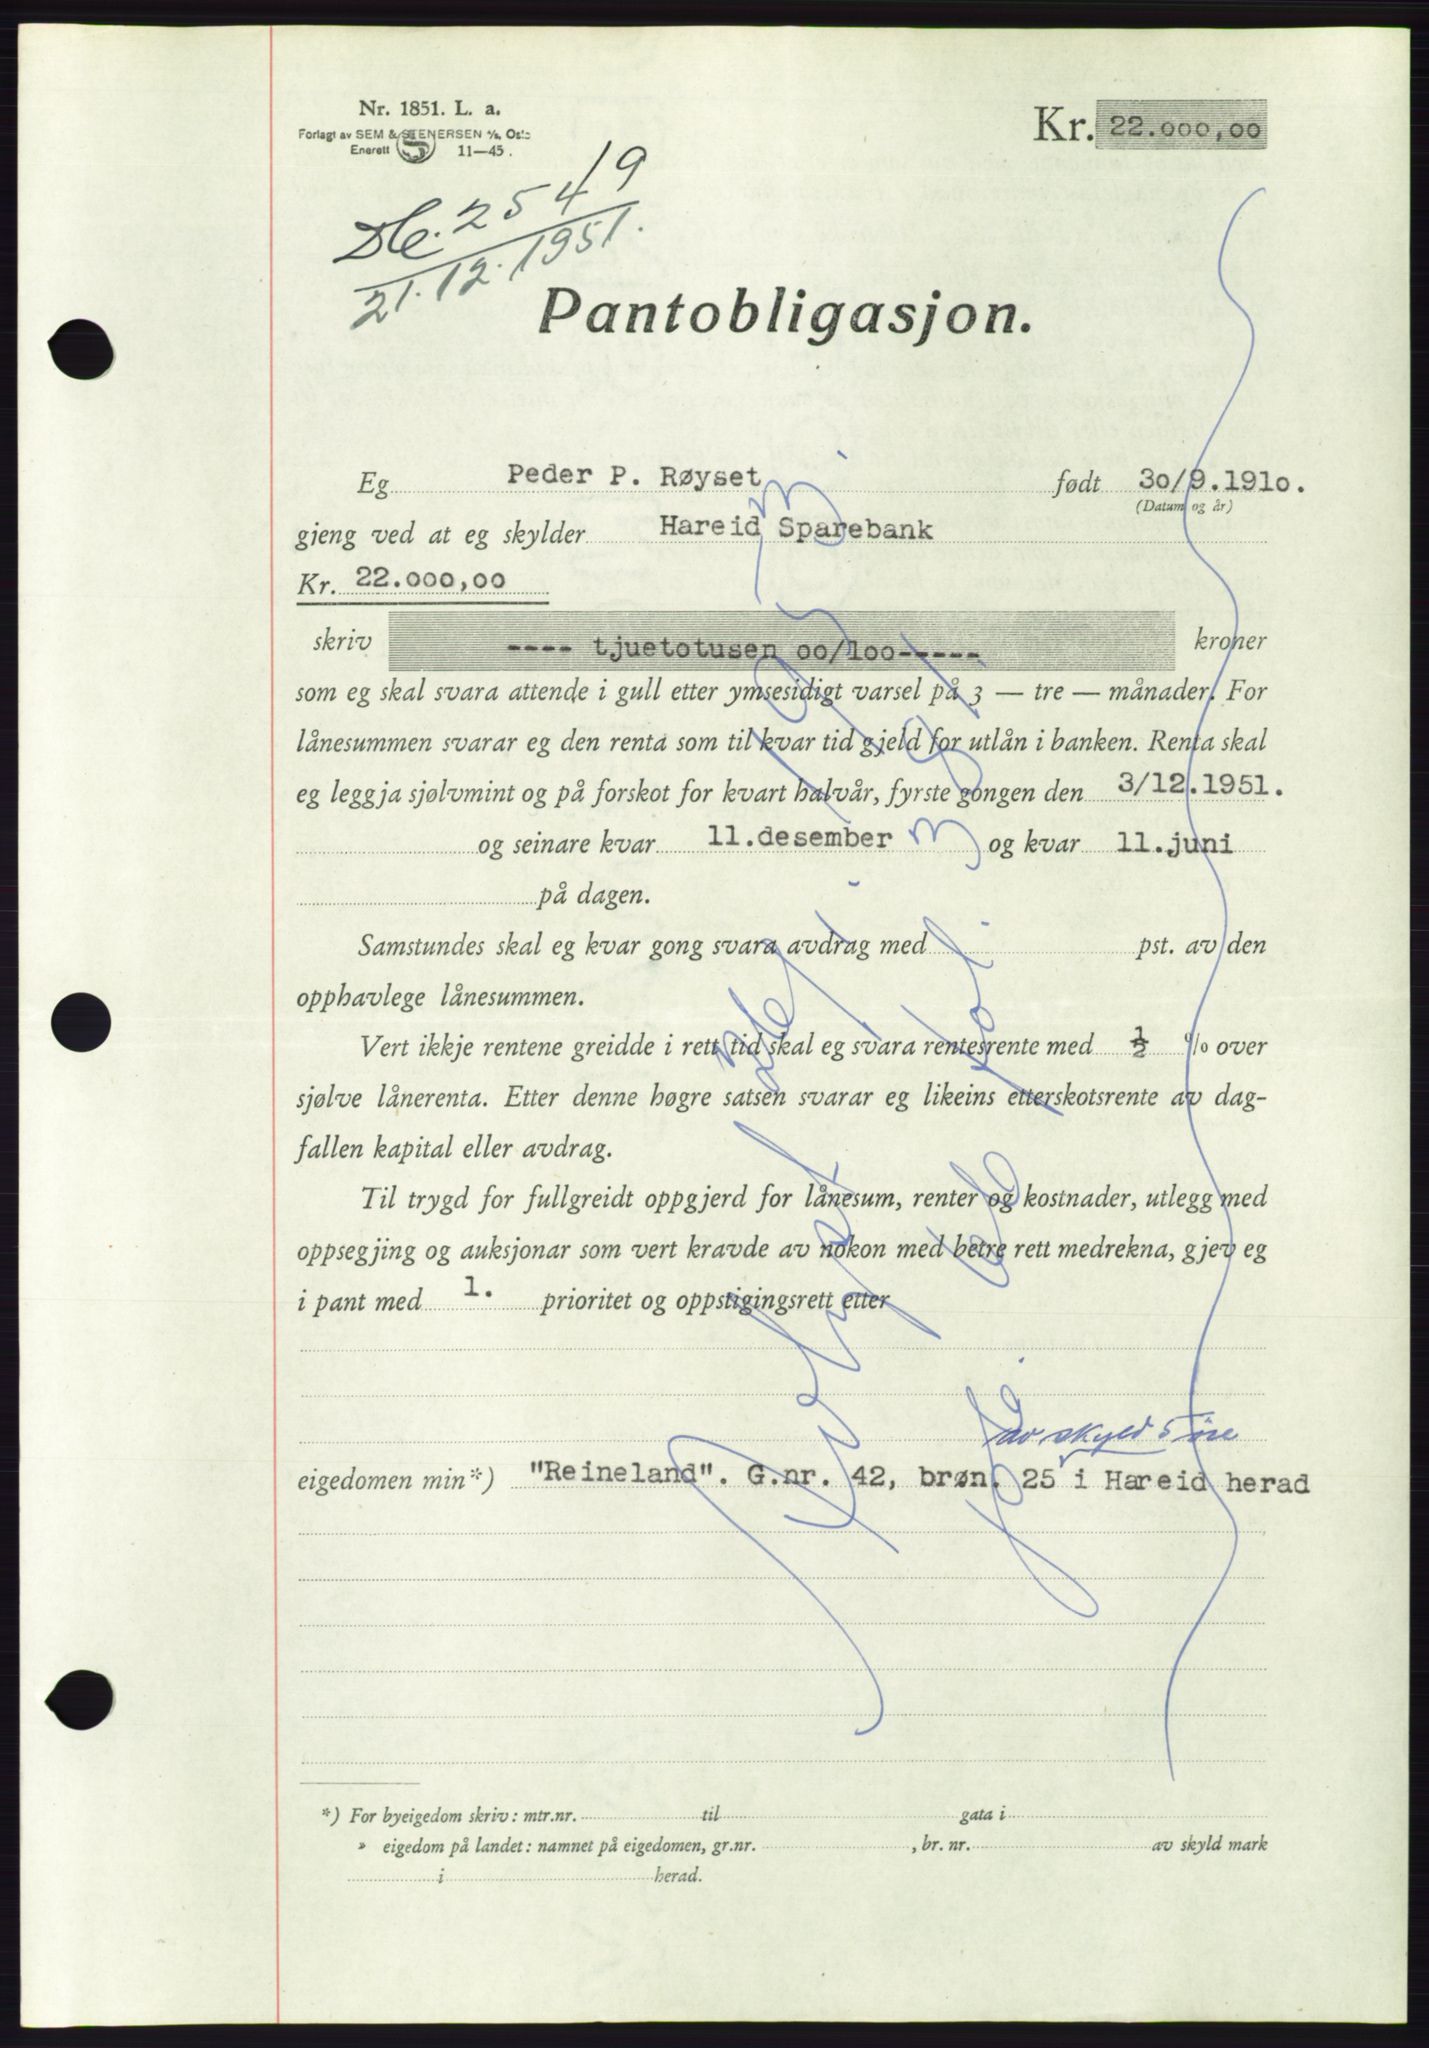 Nr. 1851. L. a.
Forlagt av SEM & STENERSEN A/S, Oslo
Enerett 11—45.
Kr. 22.000,00
2549
21.12.1951.
Pantobligasjon.
Eg Peder P. Røyset født 30/9.1910.
(Datum og år)
gjeng ved at eg skylder Hareid Sparebank
Kr. 22.000,00
skriv ---- tjuetotusen 00/100----- kroner
som eg skal svara attende i gull etter ymsesidigt varsel på 3 — tre — månader. For
lånesummen svarar eg den renta som til kvar tid gjeld for utlån i banken. Renta skal
eg leggja sjølvmint og på forskot for kvart halvår, fyrste gongen den 3/12.1951.
og seinare kvar 11.desember og kvar 11.juni
på dagen.
Samstundes skal eg kvar gong svara avdrag med pst. av den
opphavlege lånesummen.
Vert ikkje rentene greidde i rett tid skal eg svara rentesrente med ½ % over
sjølve lånerenta. Etter denne høgre satsen svarar eg likeins etterskotsrente av dag-
fallen kapital eller avdrag.
Til trygd for fullgreidt oppgjerd for lånesum, renter og kostnader, utlegg med
oppsegjing og auksjonar som vert kravde av nokon med betre rett medrekna, gjev eg
i pant med 1. prioritet og oppstigingsrett etter
av skyld 5 øre
eigedomen min*) "Reineland". G.nr. 42, brøn. 25 i Hareid herad
*) For byeigedom skriv: mtr.nr. til gata i
» eigedom på landet: namnet på eigedomen, gr.nr. , br. nr. av skyld mark
i herad.